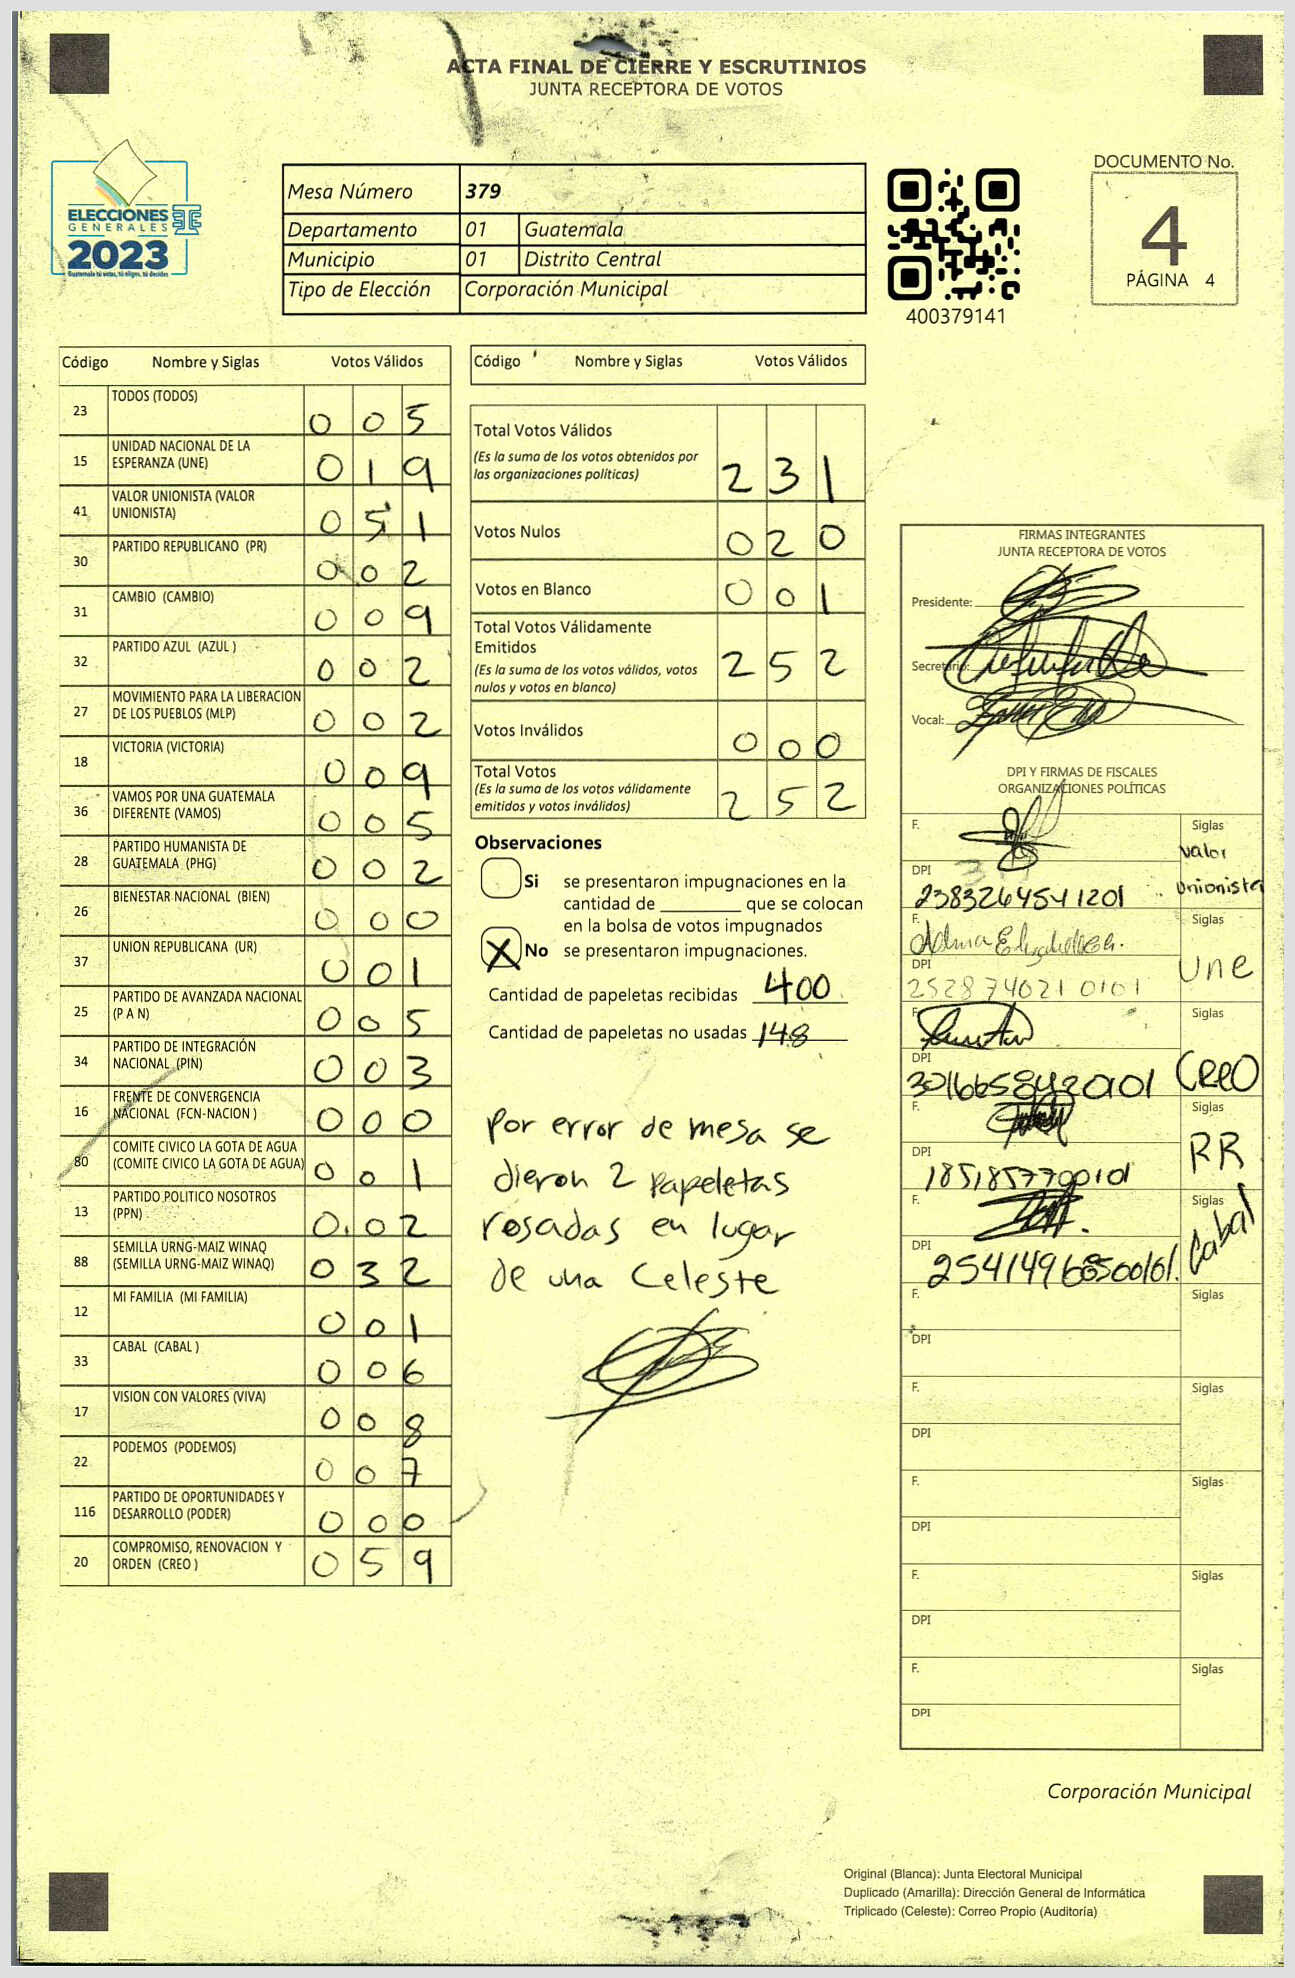 ACTA FINAL DE CIERRE Y ESCRUTINIOS
JUNTA RECEPTORA DE VOTOS
ELECCIONES
GENERALES
2023
Guatemala tú votas, tú eliges, tú decides
Mesa Número 379
Departamento 01 Guatemala
Municipio 01 Distrito Central
Tipo de Elección Corporación Municipal
400379141
DOCUMENTO No.
4
PÁGINA 4
Código Nombre y Siglas Votos Válidos
23 TODOS (TODOS) 0 0 5
15 UNIDAD NACIONAL DE LA
ESPERANZA (UNE) 0 1 9
41 VALOR UNIONISTA (VALOR
UNIONISTA) 0 5 1
30 PARTIDO REPUBLICANO (PR) 0 0 2
31 CAMBIO (CAMBIO) 0 0 9
32 PARTIDO AZUL (AZUL ) 0 0 2
27 MOVIMIENTO PARA LA LIBERACION
DE LOS PUEBLOS (MLP) 0 0 2
18 VICTORIA (VICTORIA) 0 0 9
36 VAMOS POR UNA GUATEMALA
DIFERENTE (VAMOS) 0 0 5
28 PARTIDO HUMANISTA DE
GUATEMALA (PHG) 0 0 2
26 BIENESTAR NACIONAL (BIEN) 0 0 0
37 UNION REPUBLICANA (UR) 0 0 1
25 PARTIDO DE AVANZADA NACIONAL
(P A N) 0 0 5
34 PARTIDO DE INTEGRACIÓN
NACIONAL (PIN) 0 0 3
16 FRENTE DE CONVERGENCIA
NACIONAL (FCN-NACION ) 0 0 0
80 COMITE CIVICO LA GOTA DE AGUA
(COMITE CIVICO LA GOTA DE AGUA) 0 0 1
13 PARTIDO POLITICO NOSOTROS
(PPN) 0 0 2
88 SEMILLA URNG-MAIZ WINAQ
(SEMILLA URNG-MAIZ WINAQ) 0 3 2
12 MI FAMILIA (MI FAMILIA) 0 0 1
33 CABAL (CABAL ) 0 0 6
17 VISION CON VALORES (VIVA) 0 0 8
22 PODEMOS (PODEMOS) 0 0 7
116 PARTIDO DE OPORTUNIDADES Y
DESARROLLO (PODER) 0 0 0
20 COMPROMISO, RENOVACION Y
ORDEN (CREO ) 0 5 9
Código Nombre y Siglas Votos Válidos
Total Votos Válidos
(Es la suma de los votos obtenidos por
las organizaciones políticas) 2 3 1
Votos Nulos 0 2 0
Votos en Blanco 0 0 1
Total Votos Válidamente
Emitidos
(Es la suma de los votos válidos, votos
nulos y votos en blanco) 2 5 2
Votos Inválidos 0 0 0
Total Votos
(Es la suma de los votos válidamente
emitidos y votos inválidos) 2 5 2
Observaciones
Si se presentaron impugnaciones en la
cantidad de ________ que se colocan
en la bolsa de votos impugnados
X No se presentaron impugnaciones.
Cantidad de papeletas recibidas 400
Cantidad de papeletas no usadas 148
Por error de mesa se
dieron 2 papeletas
rosadas en lugar
de una Celeste
FIRMAS INTEGRANTES
JUNTA RECEPTORA DE VOTOS
Presidente:
Secretario:
Vocal:
DPI Y FIRMAS DE FISCALES
ORGANIZACIONES POLÍTICAS
F. Siglas
Valor
Unionista
DPI 2383264541201
F. Siglas
Une
DPI 2528740210101
F. Siglas
CREO
DPI
F. Siglas
RR
DPI 1851857700101
F. Siglas
Cabal
DPI
F. Siglas
DPI
F. Siglas
DPI
F. Siglas
DPI
F. Siglas
DPI
F. Siglas
DPI
Corporación Municipal
Original (Blanca): Junta Electoral Municipal
Duplicado (Amarilla): Dirección General de Informática
Triplicado (Celeste): Correo Propio (Auditoría)